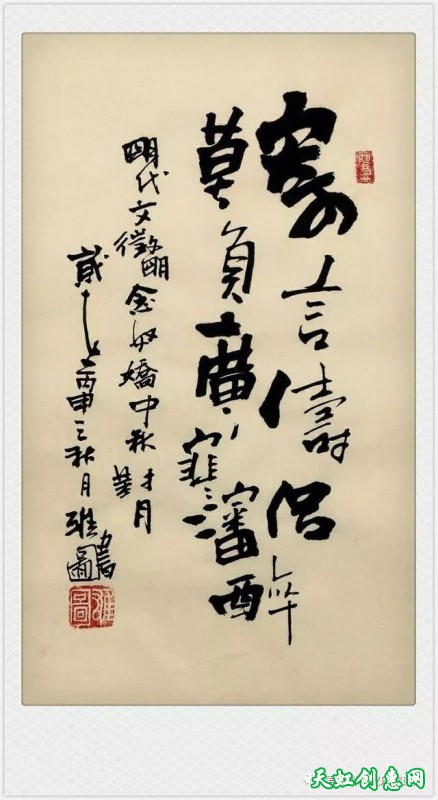 寄言儔侶
莫負廣寒瀋醉
明代文徵明念奴嬌中秋對月
歲丙申三秋月圖書
天虹创意网